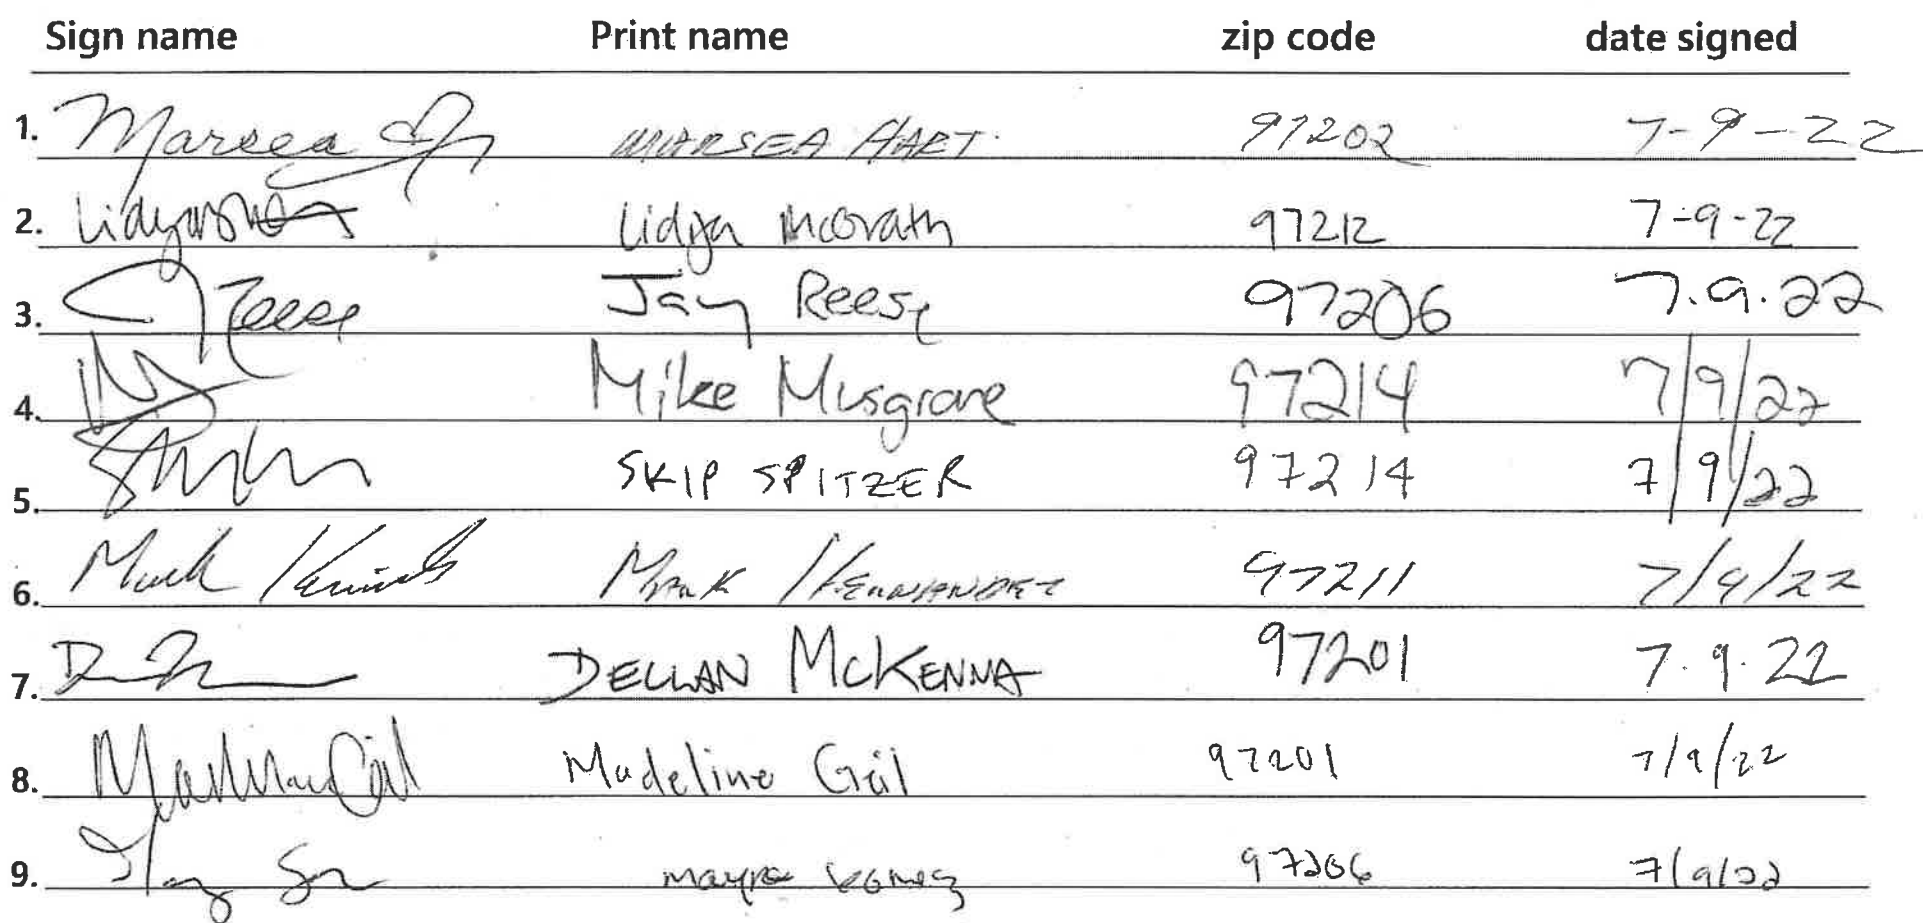 Sign name Print name zip code date signed
1. Marsea MARSEA HART 97202 7-9-22
2. Lidya McGrath 97212 7-9-22
3. J Reese Jay Reese 97206 7.9.22
4. Mike Musgrove 97214 7/9/22
5. SKIP SPITZER 97214 7/9/22
6. Mark MARK HERNANDEZ 97211 7/9/22
7. DECLAN MCKENNA 97201 7.9.22
8. Madeline Gail 97201 7/9/22
9. mayra gomez 97206 7/9/22